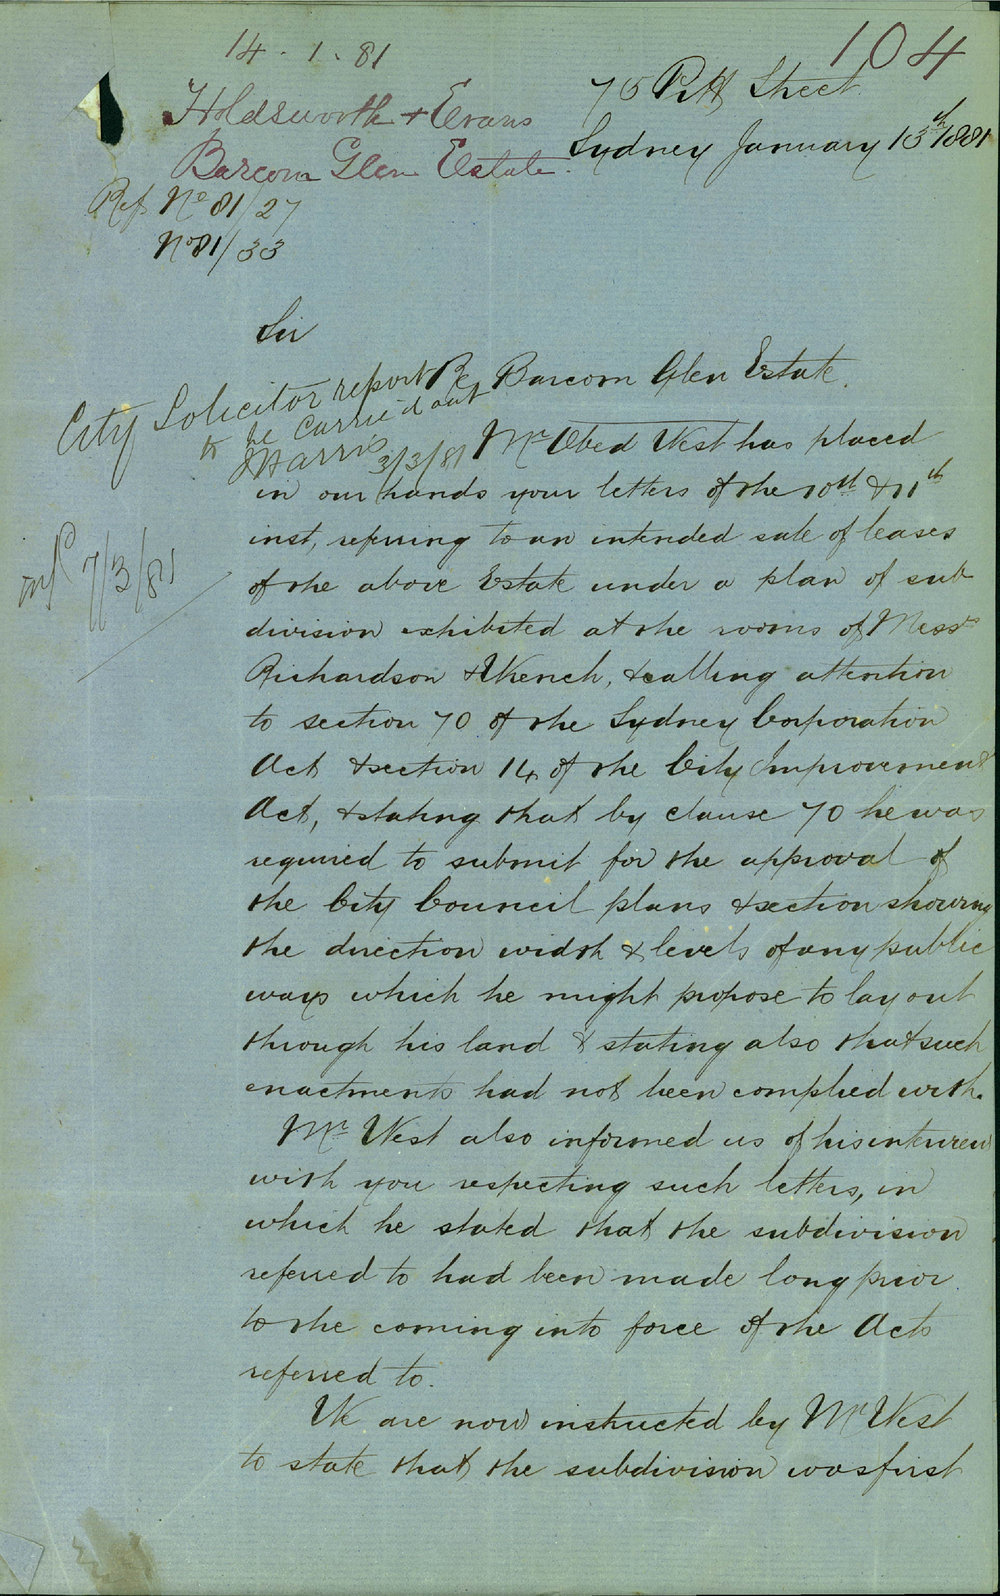 104
14 . 1 . 81
Holdsworth + Evans
Barcom Glen Estate.
Ref No 81/27
No 81/33
75 Pitt Street
Sydney January 13th 1881
Sir
Re Barcom Glen Estate.
City Solicitor report
to be carried out
J Harris 3/3/81
7/3/81
Mr Obed West has placed
in our hands your letters of the 10th & 11th
inst, referring to an intended sale of leases
of the above Estate under a plan of sub
division exhibited at the rooms of Messrs
Richardson & Wrench, & calling attention
to section 70 of the Sydney Corporation
Act & section 14 of the City Improvement
Act, & stating that by clause 70 he was
required to submit for the approval of
the City Council plans & section showing
the direction width & levels of any public
ways which he might propose to lay out
through his land & stating also that such
enactments had not been complied with.
Mr West also informed us of his interview
with you respecting such letters, in
which he stated that the subdivision
referred to had been made long prior
to the coming into force of the Acts
referred to.
We are now instructed by Mr West
to state that the subdivision was first